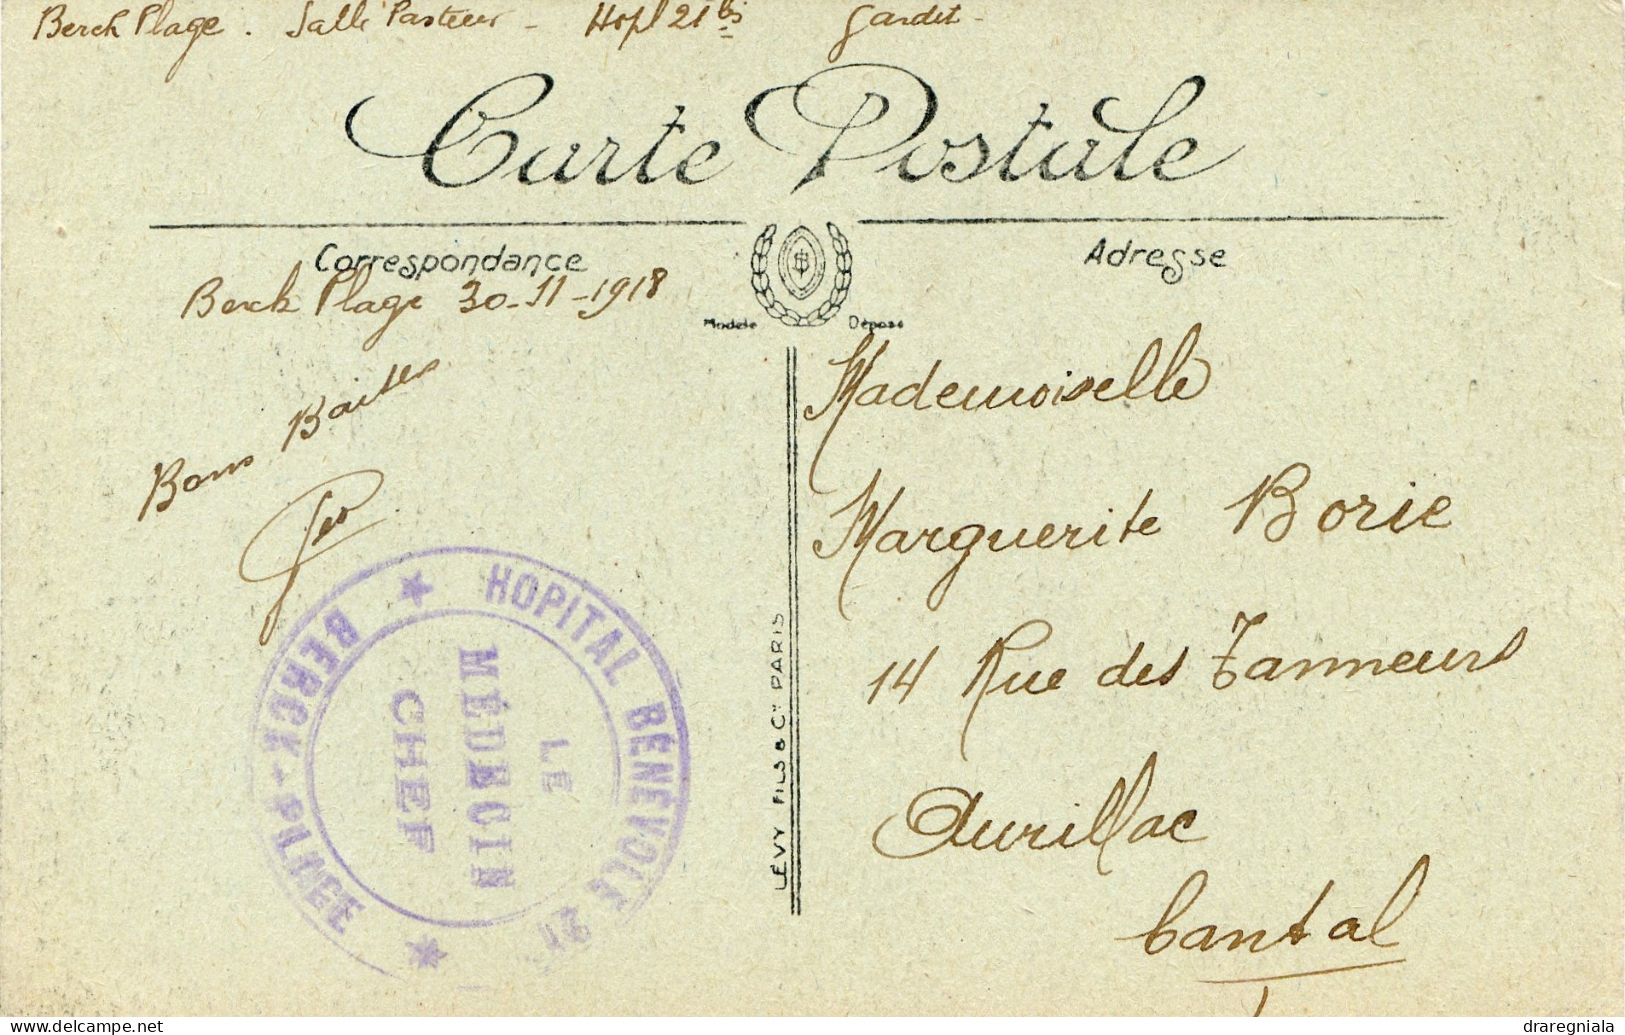 Berck Plage. Salle Pasteur - Hopl 21 bis Gardet -
Carte Postale
Correspondance
Adresse
Modèle Déposé
Berck Plage 30-11-1918
Bons Baisers
Geo
Mademoiselle
Marguerite Borie
14 Rue des Tanneurs
Aurillac
Cantal
LÉVY FILS & Cie PARIS
HOPITAL BÉNÉVOLE 21
BERCK-PLAGE
LE
MÉDECIN
CHEF
draregniala